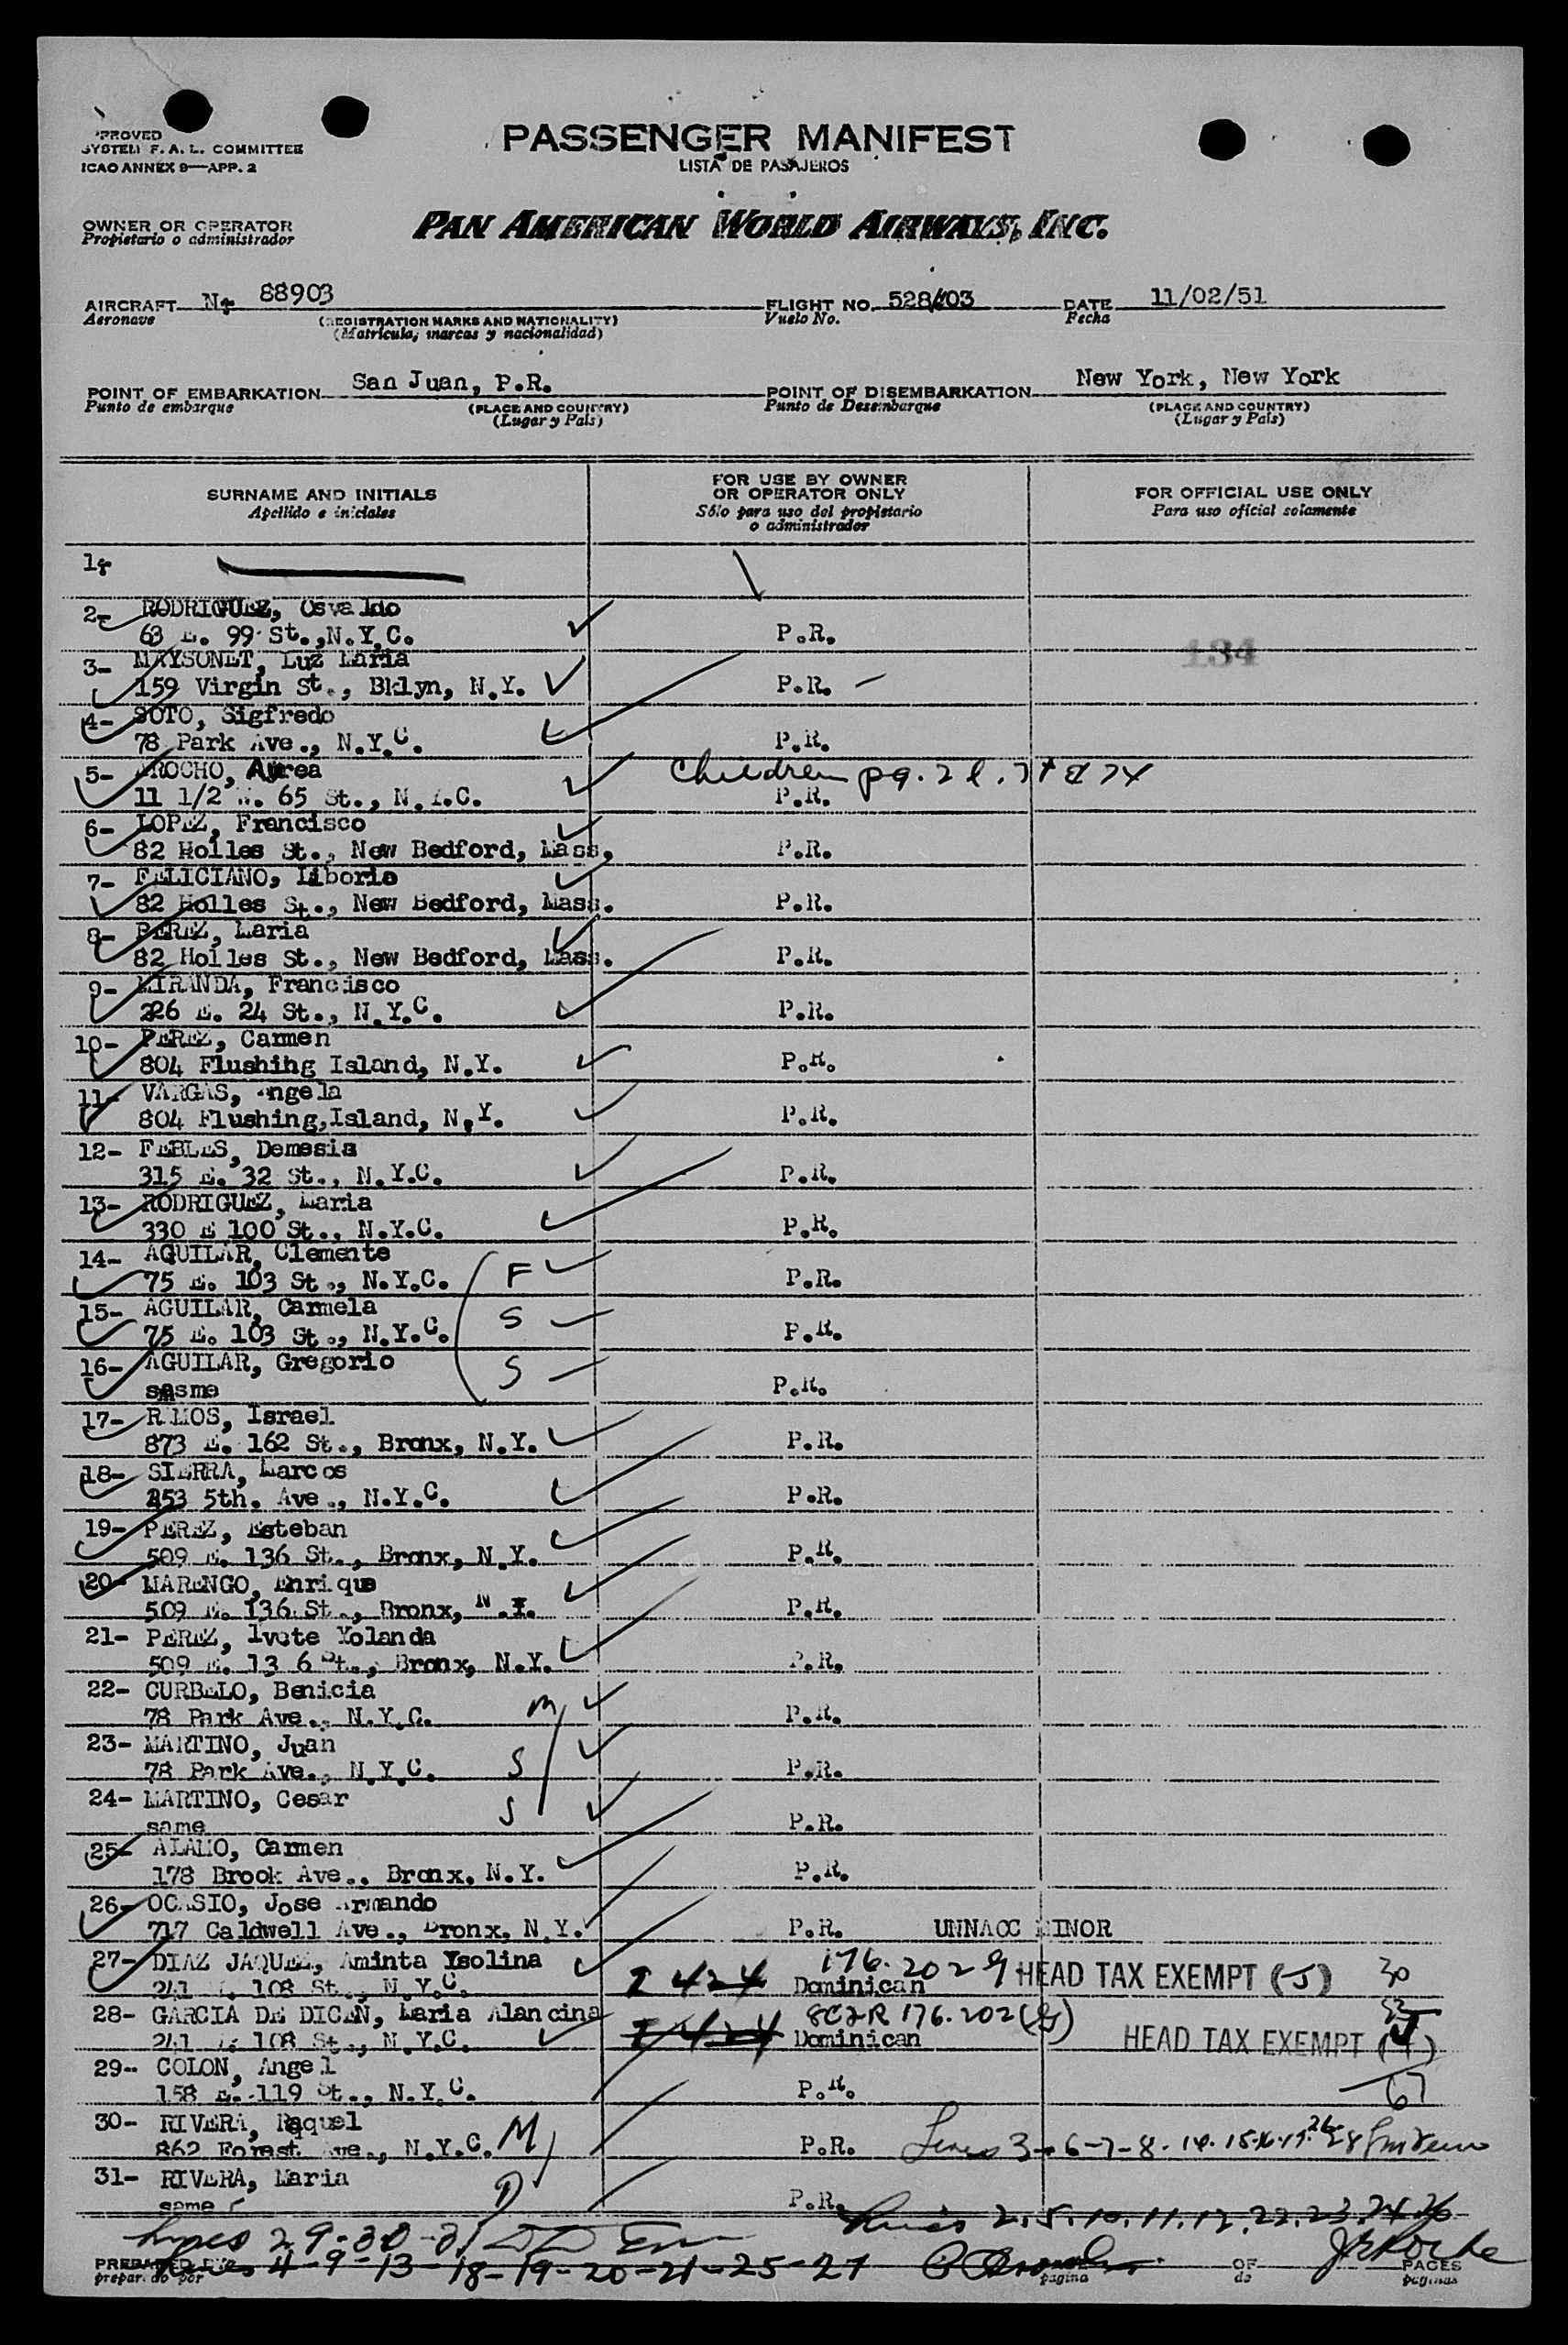 PROVED
SYSTEM F. A. L. COMMITTEE
ICAO ANNEX 9—APP. 2
PASSENGER MANIFEST
LISTA DE PASAJEROS
OWNER OR OPERATOR
Propietario o administrador
PAN AMERICAN WORLD AIRWAYS, INC.
AIRCRAFT N- 88903 FLIGHT NO. 528/203 DATE 11/02/51
Aeronave (REGISTRATION MARKS AND NATIONALITY) Vuelo No. Fecha
(Matricula, marcas y nacionalidad)
POINT OF EMBARKATION San Juan, P.R. POINT OF DISEMBARKATION New York, New York
Punto de embarque (PLACE AND COUNTRY) Punto de Desembarque (PLACE AND COUNTRY)
(Lugar y País) (Lugar y País)
SURNAME AND INITIALS FOR USE BY OWNER OR OPERATOR ONLY FOR OFFICIAL USE ONLY
Apellido e iniciales Sólo para uso del propietario o administrador Para uso oficial solamente
1-
2- RODRIGUEZ, Osvaldo
63 E. 99 St.,N.Y.C. P.R. 134
3- MAYSONET, Luz Maria
159 Virgin St., Bklyn, N.Y. P.R.
4- SOTO, Sigfredo
78 Park Ave., N.Y.C. P.R.
5- AROCHO, Aurea Children pg. 2 l.
11 1/2 W. 65 St., N.Y.C. P.R.
6- LOPEZ, Francisco
82 Holles St., New Bedford, Mass, P.R.
7- FELICIANO, Liborio
82 Holles St., New Bedford, Mass. P.R.
8- PEREZ, Maria
82 Holles St., New Bedford, Mass. P.R.
9- MIRANDA, Francisco
226 E. 24 St., N.Y.C. P.R.
10- PEREZ, Carmen
804 Flushihg Island, N.Y. P.R.
11- VARGAS, Angela
804 Flushing,Island, N.Y. P.R.
12- FEBLES, Demesia
315 E. 32 St., N.Y.C. P.R.
13- RODRIGUEZ, Maria
330 E 100 St., N.Y.C. P.R.
14- AGUILAR, Clemente
75 E. 103 St., N.Y.C. F P.R.
15- AGUILAR, Carmela
75 E. 103 St., N.Y.C. S P.R.
16- AGUILAR, Gregorio S
same P.R.
17- RAMOS, Israel
873 E. 162 St., Bronx, N.Y. P.R.
18- SIERRA, Marcos
253 5th. Ave., N.Y.C. P.R.
19- PEREZ, Esteban
509 E. 136 St., Bronx, N.Y. P.R.
20- MARENGO, Enrique
509 E. 136 St., Bronx, N.Y. P.R.
21- PEREZ, Ivote Yolanda
509 E. 13 6 St., Bronx, N.Y. P.R.
22- CURBELO, Benicia
78 Park Ave., N.Y.C. M P.R.
23- MARTINO, Juan
78 Park Ave., N.Y.C. S P.R.
24- MARTINO, Cesar S
same P.R.
25- ALAMO, Carmen
178 Brook Ave., Bronx, N.Y. P.R.
26- OCASIO, Jose Armando
717 Caldwell Ave., Bronx, N.Y. P.R. UNNACC MINOR
27- DIAZ JAQUEZ, Aminta Ysolina 176.202 g HEAD TAX EXEMPT (J) 30
241 E. 108 St., N.Y.C. I 424 Dominican
28- GARCIA DE DICEN, Maria Alancina 8CFR 176.202(g)
241 E. 108 St., N.Y.C. I 424 Dominican HEAD TAX EXEMPT ( )
29- COLON, Angel 67
158 E. 119 St., N.Y.C. P.R.
30- RIVERA, Raquel
862 Forest Ave., N.Y.C. M P.R. Lines 3-6-7-8-14-15-16-17-
31- RIVERA, Maria
same D P.R.
Lines 2.5.10.11.12.22.23.24.26
Lines 29-30-31
PREPARED BY Lines 4-9-13-18-19-20-21-25-27 OF PAGES
preparado por página de páginas